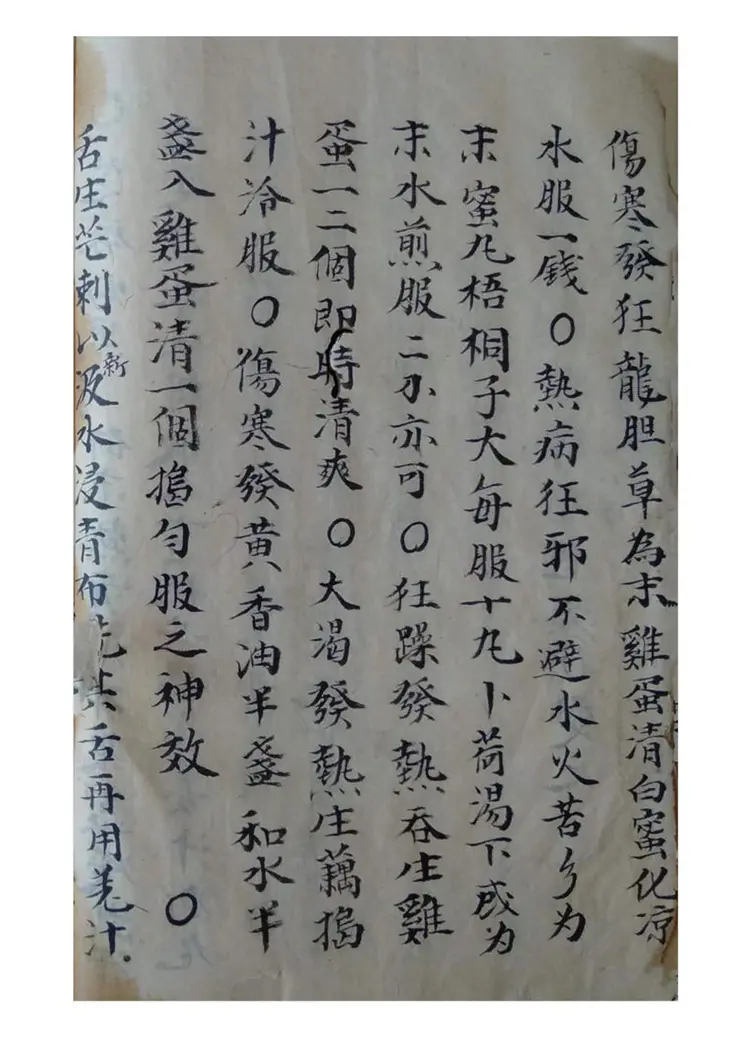 傷寒發狂龍胆草為末雞蛋清白蜜化凉
水服一錢〇熱病狂邪不避水火苦參为
末蜜丸梧桐子大每服十丸卜荷湯下或为
末水煎服二分亦可〇狂躁發熱吞生雞
蛋一二個即時清爽〇大渴發熱生藕搗
汁冷服〇傷寒發黃香油半盞和水半
盞入雞蛋清一個搗勻服之神效〇
舌生芒刺以新汲水浸青布洗其舌再用羌汁.